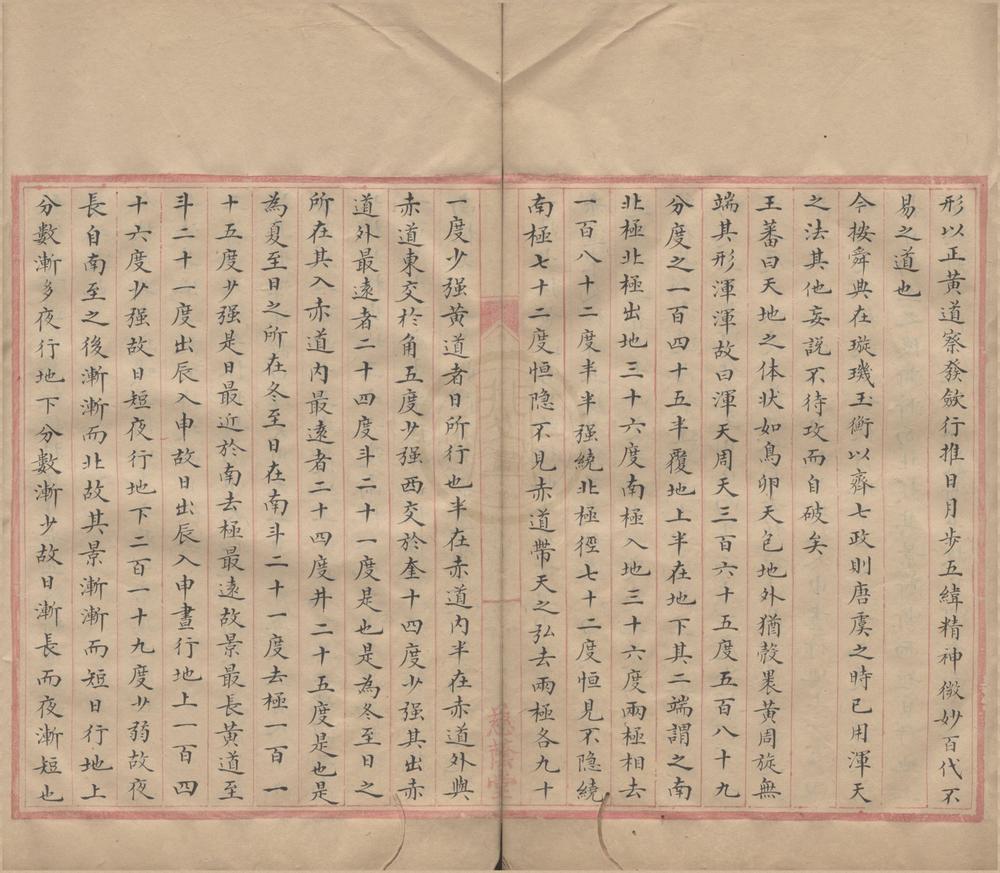 形以正黃道察發斂行推日月步五緯精神微妙百代不
易之道也
今按舜典在璇璣玉衡以齊七政則唐虞之時已用渾天
之法其他妄說不待攻而自破矣
王蕃曰天地之体狀如鳥卵天包地外猶殼裹黃周旋無
端其形渾渾故曰渾天周天三百六十五度五百八十九
分度之一百四十五半覆地上半在地下其二端謂之南
北極北極出地三十六度南極入地三十六度兩極相去
一百八十二度半半强繞北極徑七十二度恒見不隐繞
南極七十二度恒隐不見赤道帶天之弘去兩極各九十
一度少强黃道者日所行也半在赤道内半在赤道外與
赤道東交於角五度少强西交於奎十四度少强其出赤
道外最遠者二十四度斗二十一度是也是為冬至日之
所在其入赤道内最遠者二十四度井二十五度是也是
為夏至日之所在冬至日在南斗二十一度去極一百一
十五度少强是日最近於南去極最遠故景最長黃道至
斗二十一度出辰入申故日出辰入申晝行地上一百四
十六度少强故日短夜行地下二百一十九度少弱故夜
長自南至之後漸漸而北故其景漸漸而短日行地上
分數漸多夜行地下分數漸少故日漸長而夜漸短也
慈蔭堂